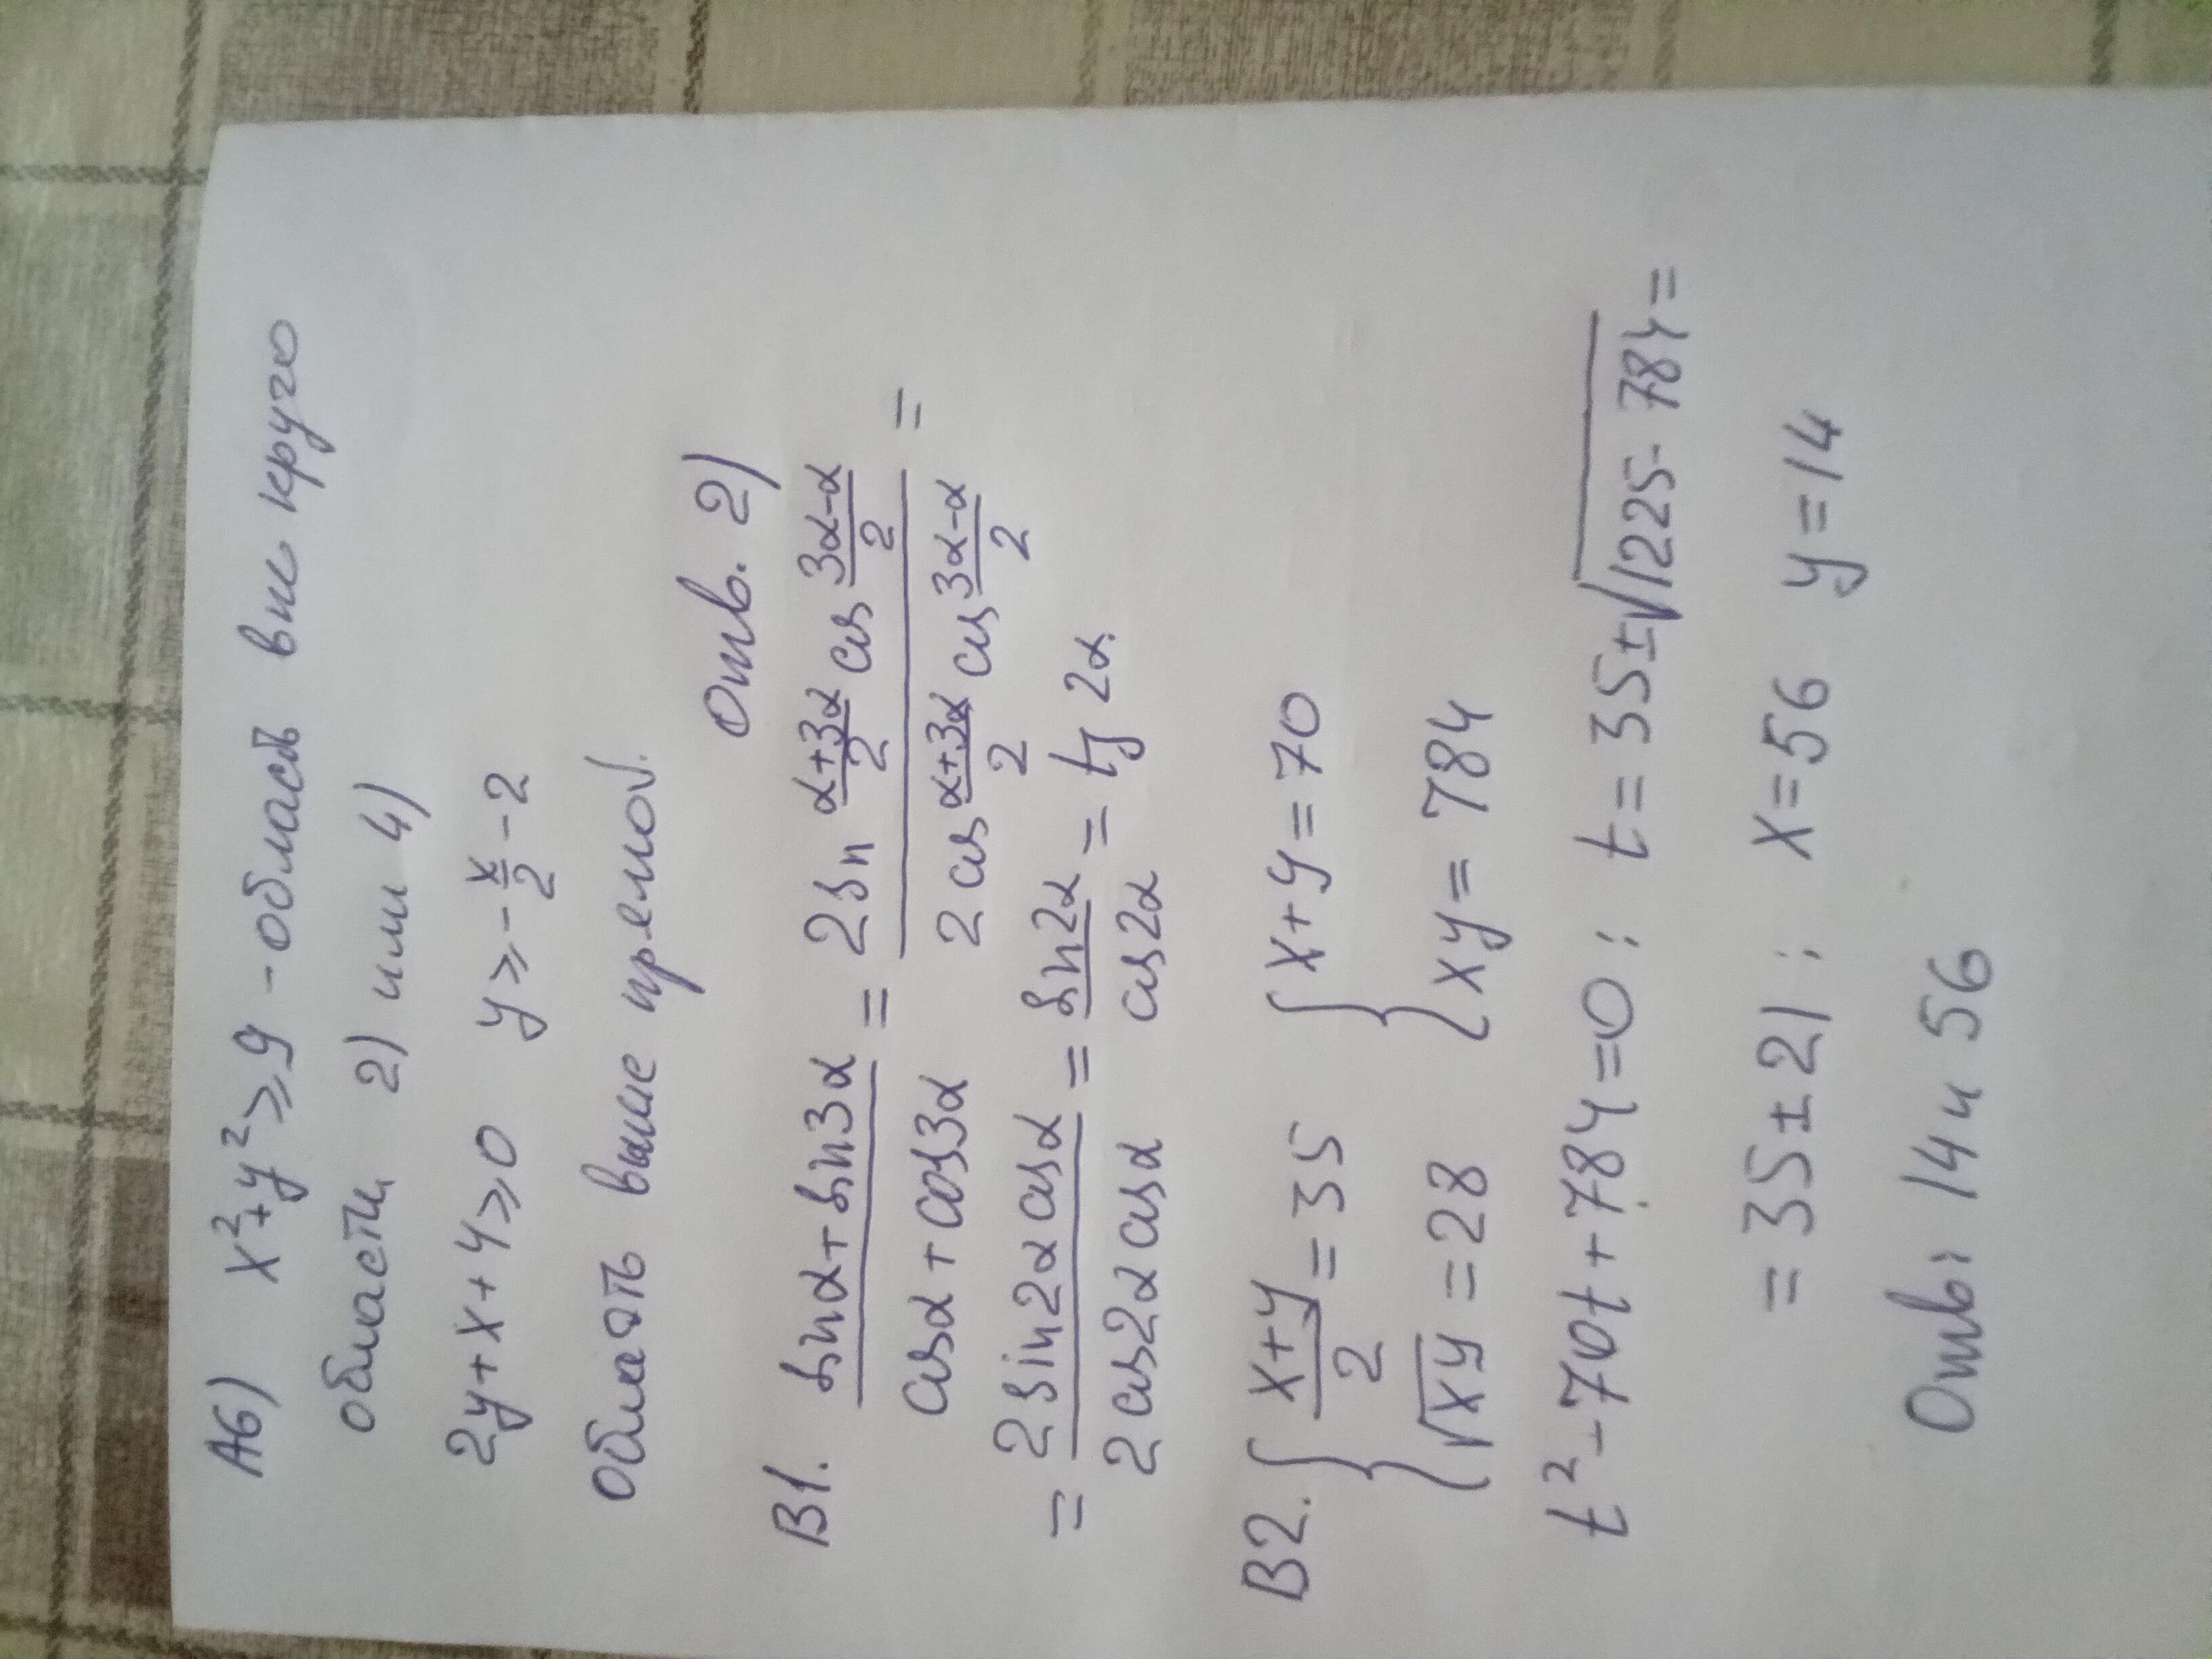 А6) x²+y²≥9 - область вне круга
области 2) или 4)
2y+x+4≥0 y≥-x/2-2
область выше прямой.
Отв. 2)
В1. (sinα+sin3α)/(cosα+cos3α) = (2sin (α+3α)/2 cos (3α-α)/2)/(2cos (α+3α)/2 cos (3α-α)/2) =
= (2sin2α cosα)/(2cos2α cosα) = sin2α/cos2α = tg 2α
В2. { (x+y)/2 = 35 { x+y=70
{ √xy = 28 { xy = 784
t²-70t+784=0; t=35±√1225-784=
=35±21; x=56 y=14
Отв: 14 и 56